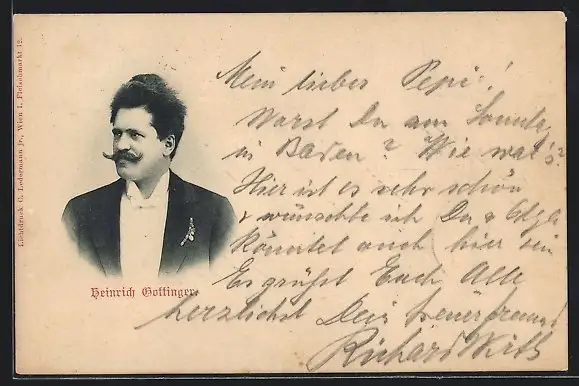 Lichtdruck C. Ledermann jr., Wien I, Fleischmarkt 12.
Heinrich Gottinger.
Mein lieber Pepi!
Warst Du am Sonntg
in Baden? Wie war's?
Hier ist es sehr schön
& wünschte ich Du &
könntet auch hier sein
Es grüßt Euch Alle
herzlichst Dein
Richard Wirth